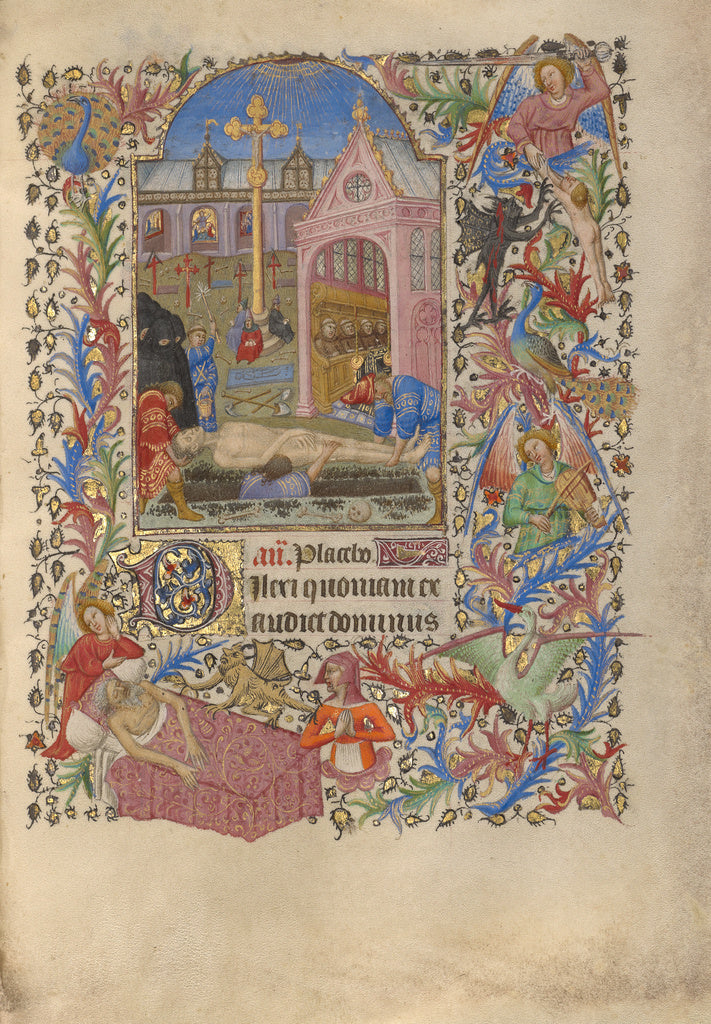 añ. Placebo.
Dilexi quoniam ex
audiet dominus